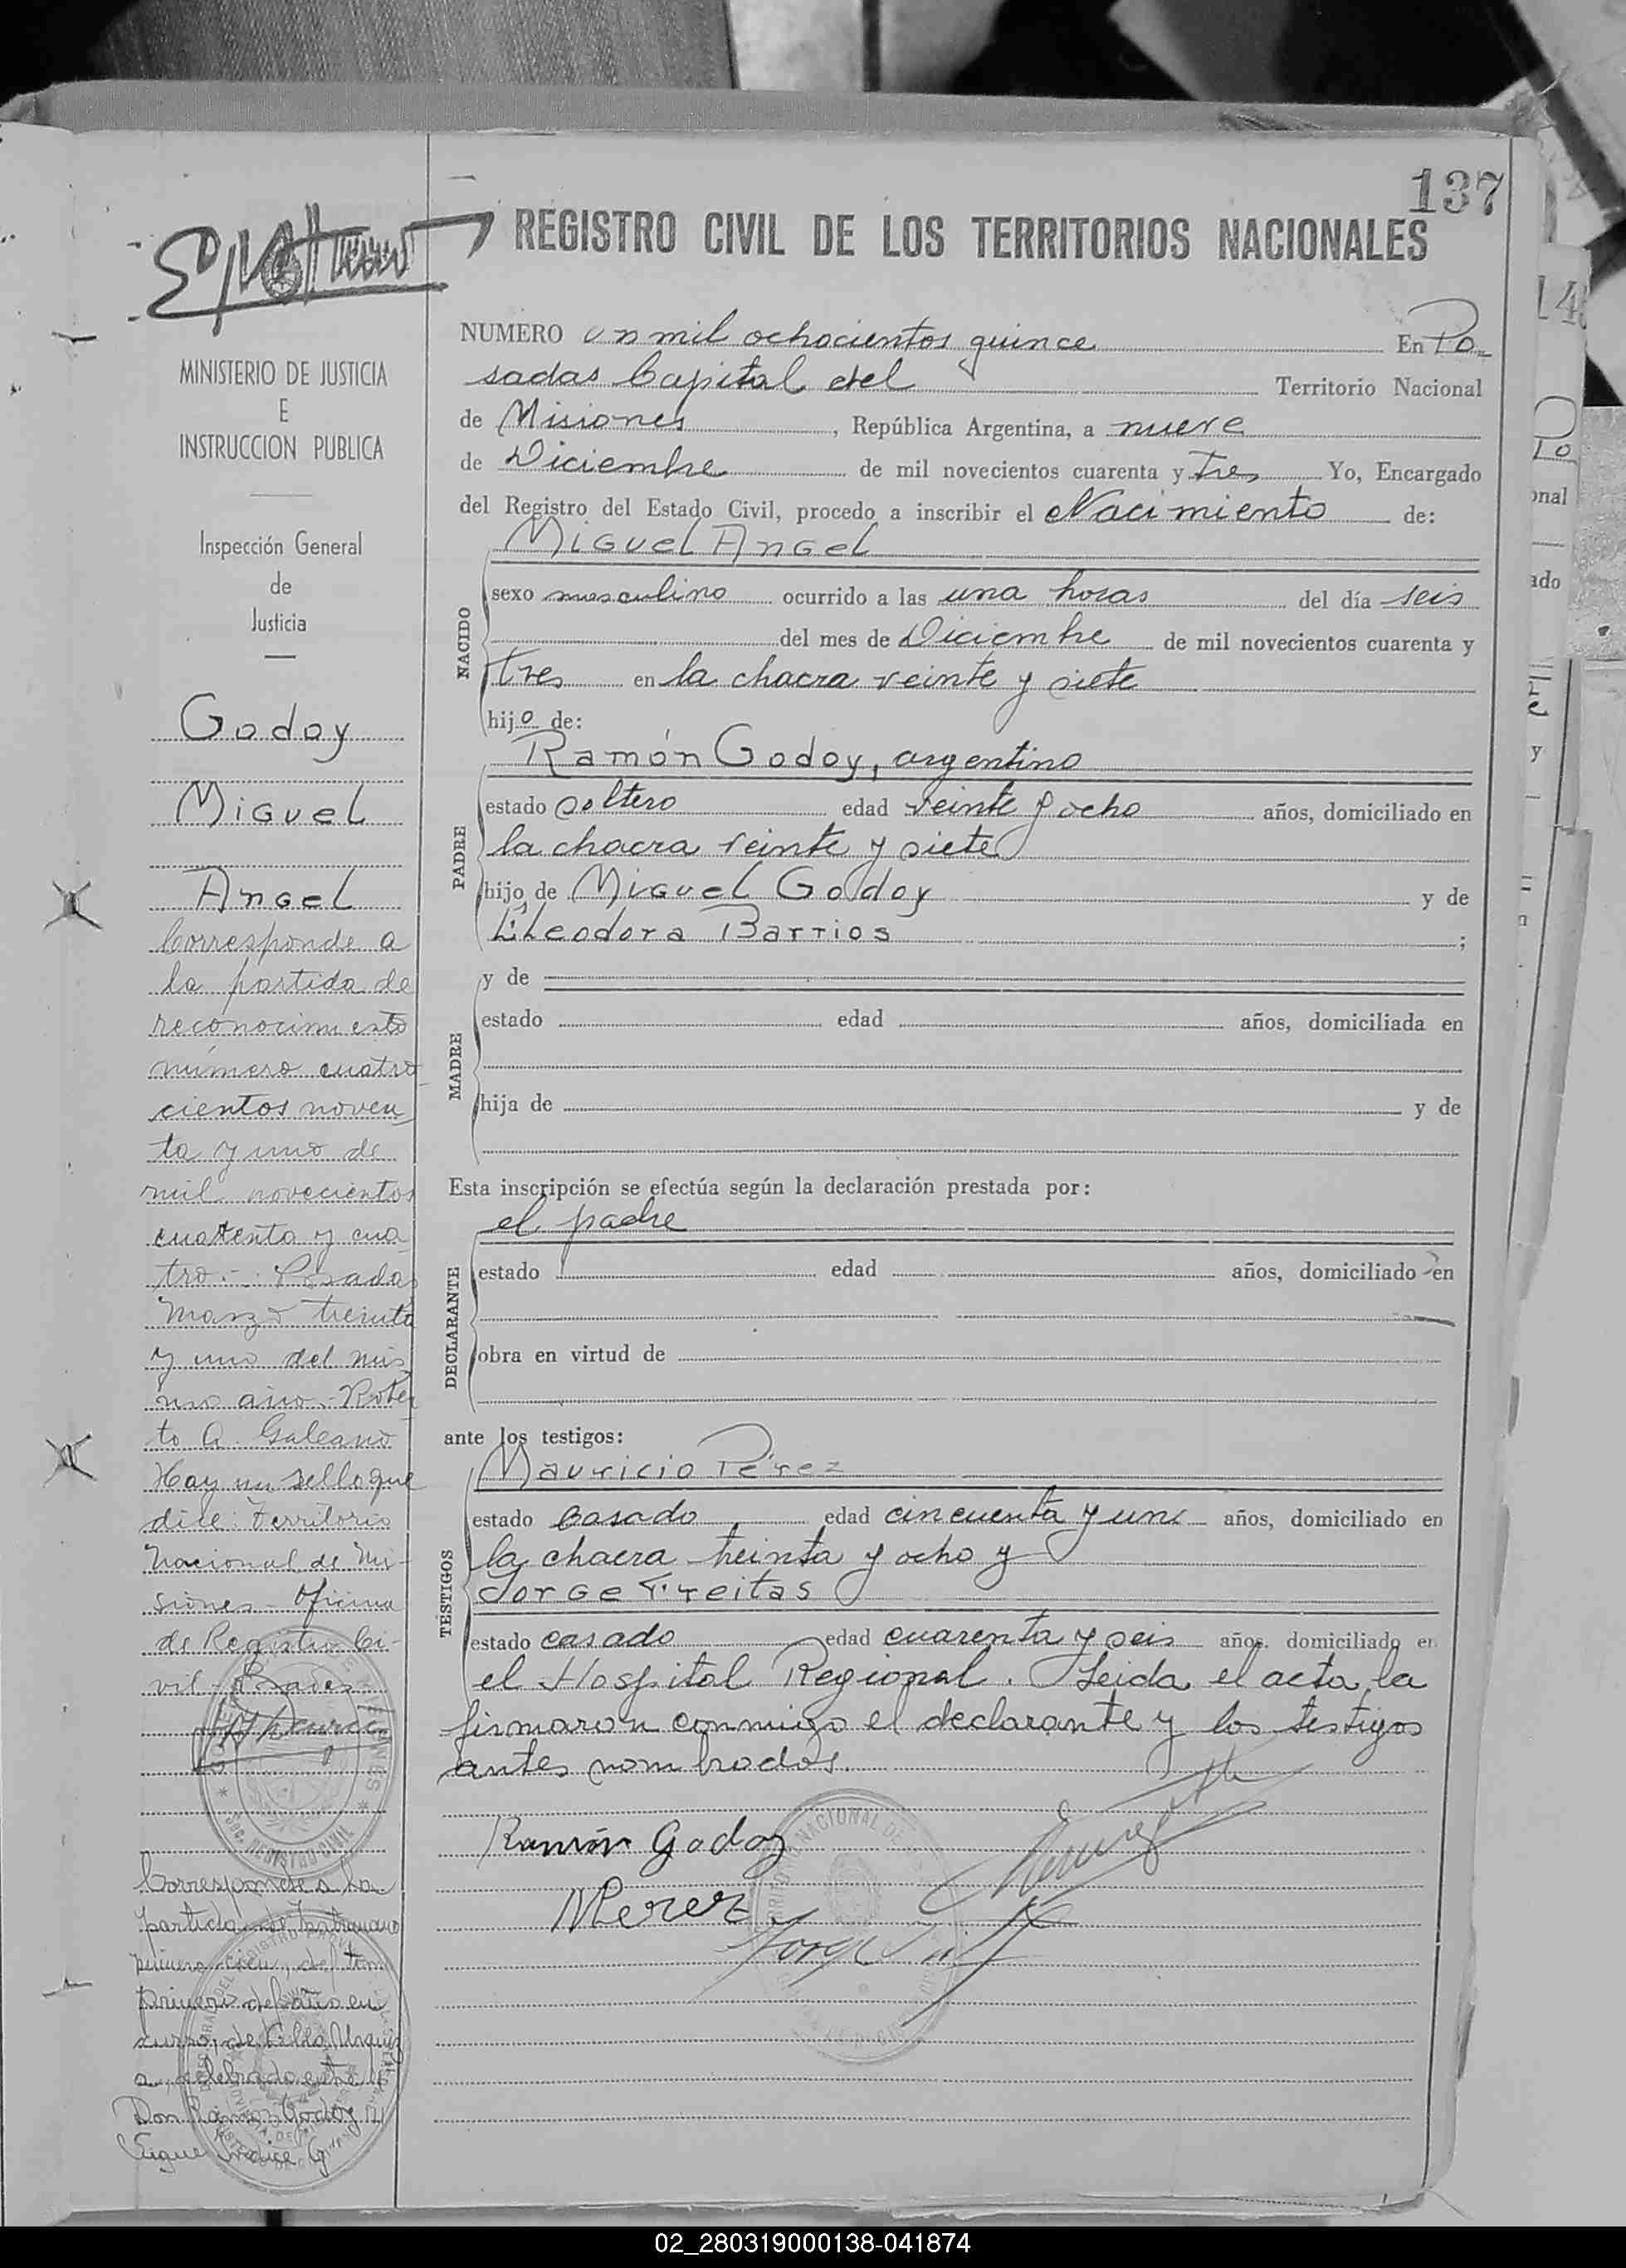 137
REGISTRO CIVIL DE LOS TERRITORIOS NACIONALES
MINISTERIO DE JUSTICIA
E
INSTRUCCION PUBLICA
Inspección General
de
Justicia
Godoy
Miguel
Angel
Corresponde a
la partida de
reconocimiento
número cuatro
cientos noven
ta y uno de
mil novecientos
cuarenta y cua
tro.- Posadas
Marzo treinta
y uno del mis
mo año.- Rober
to A. Galeano
Hay un sello que
dice: Territorio
Nacional de Mi-
siones - Oficina
de Registro Ci-
vil - Posadas
Corresponde a la
partida de
del tomo
primero del año en
curso, de
celebrado entre
Don Ramon Godoy
Sigue Indice G
NUMERO un mil ochocientos quince En Po-
sadas Capital del Territorio Nacional
de Misiones, República Argentina, a nueve
de Diciembre de mil novecientos cuarenta y tres Yo, Encargado
del Registro del Estado Civil, procedo a inscribir el Nacimiento de:
Miguel Angel
NACIDO
sexo masculino ocurrido a las una horas del día seis
del mes de Diciembre de mil novecientos cuarenta y
tres en la chacra veinte y siete
hijo de:
Ramón Godoy, argentino
PADRE
estado soltero edad veinte y ocho años, domiciliado en
la chacra veinte y siete
hijo de Miguel Godoy y de
Eleodora Barrios ;
y de
MADRE
estado edad años, domiciliada en
hija de y de
Esta inscripción se efectúa según la declaración prestada por:
el padre
DECLARANTE
estado edad años, domiciliado en
obra en virtud de
ante los testigos:
Mauricio Pérez
TESTIGOS
estado casado edad cincuenta y uno años, domiciliado en
la chacra treinta y ocho y
Jorge Freitas
estado casado edad cuarenta y seis años. domiciliado en
el Hospital Regional. Leida el acta, la
firmaron conmigo el declarante y los testigos
antes nombrados.
Ramón Godoy
MPerez
02_280319000138-041874